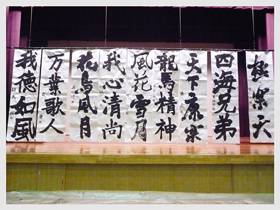 極楽天
四海兄弟
天下康楽
龍馬精神
風花雪月
我心清尚
花鳥風月
万葉歌人
我徳如風